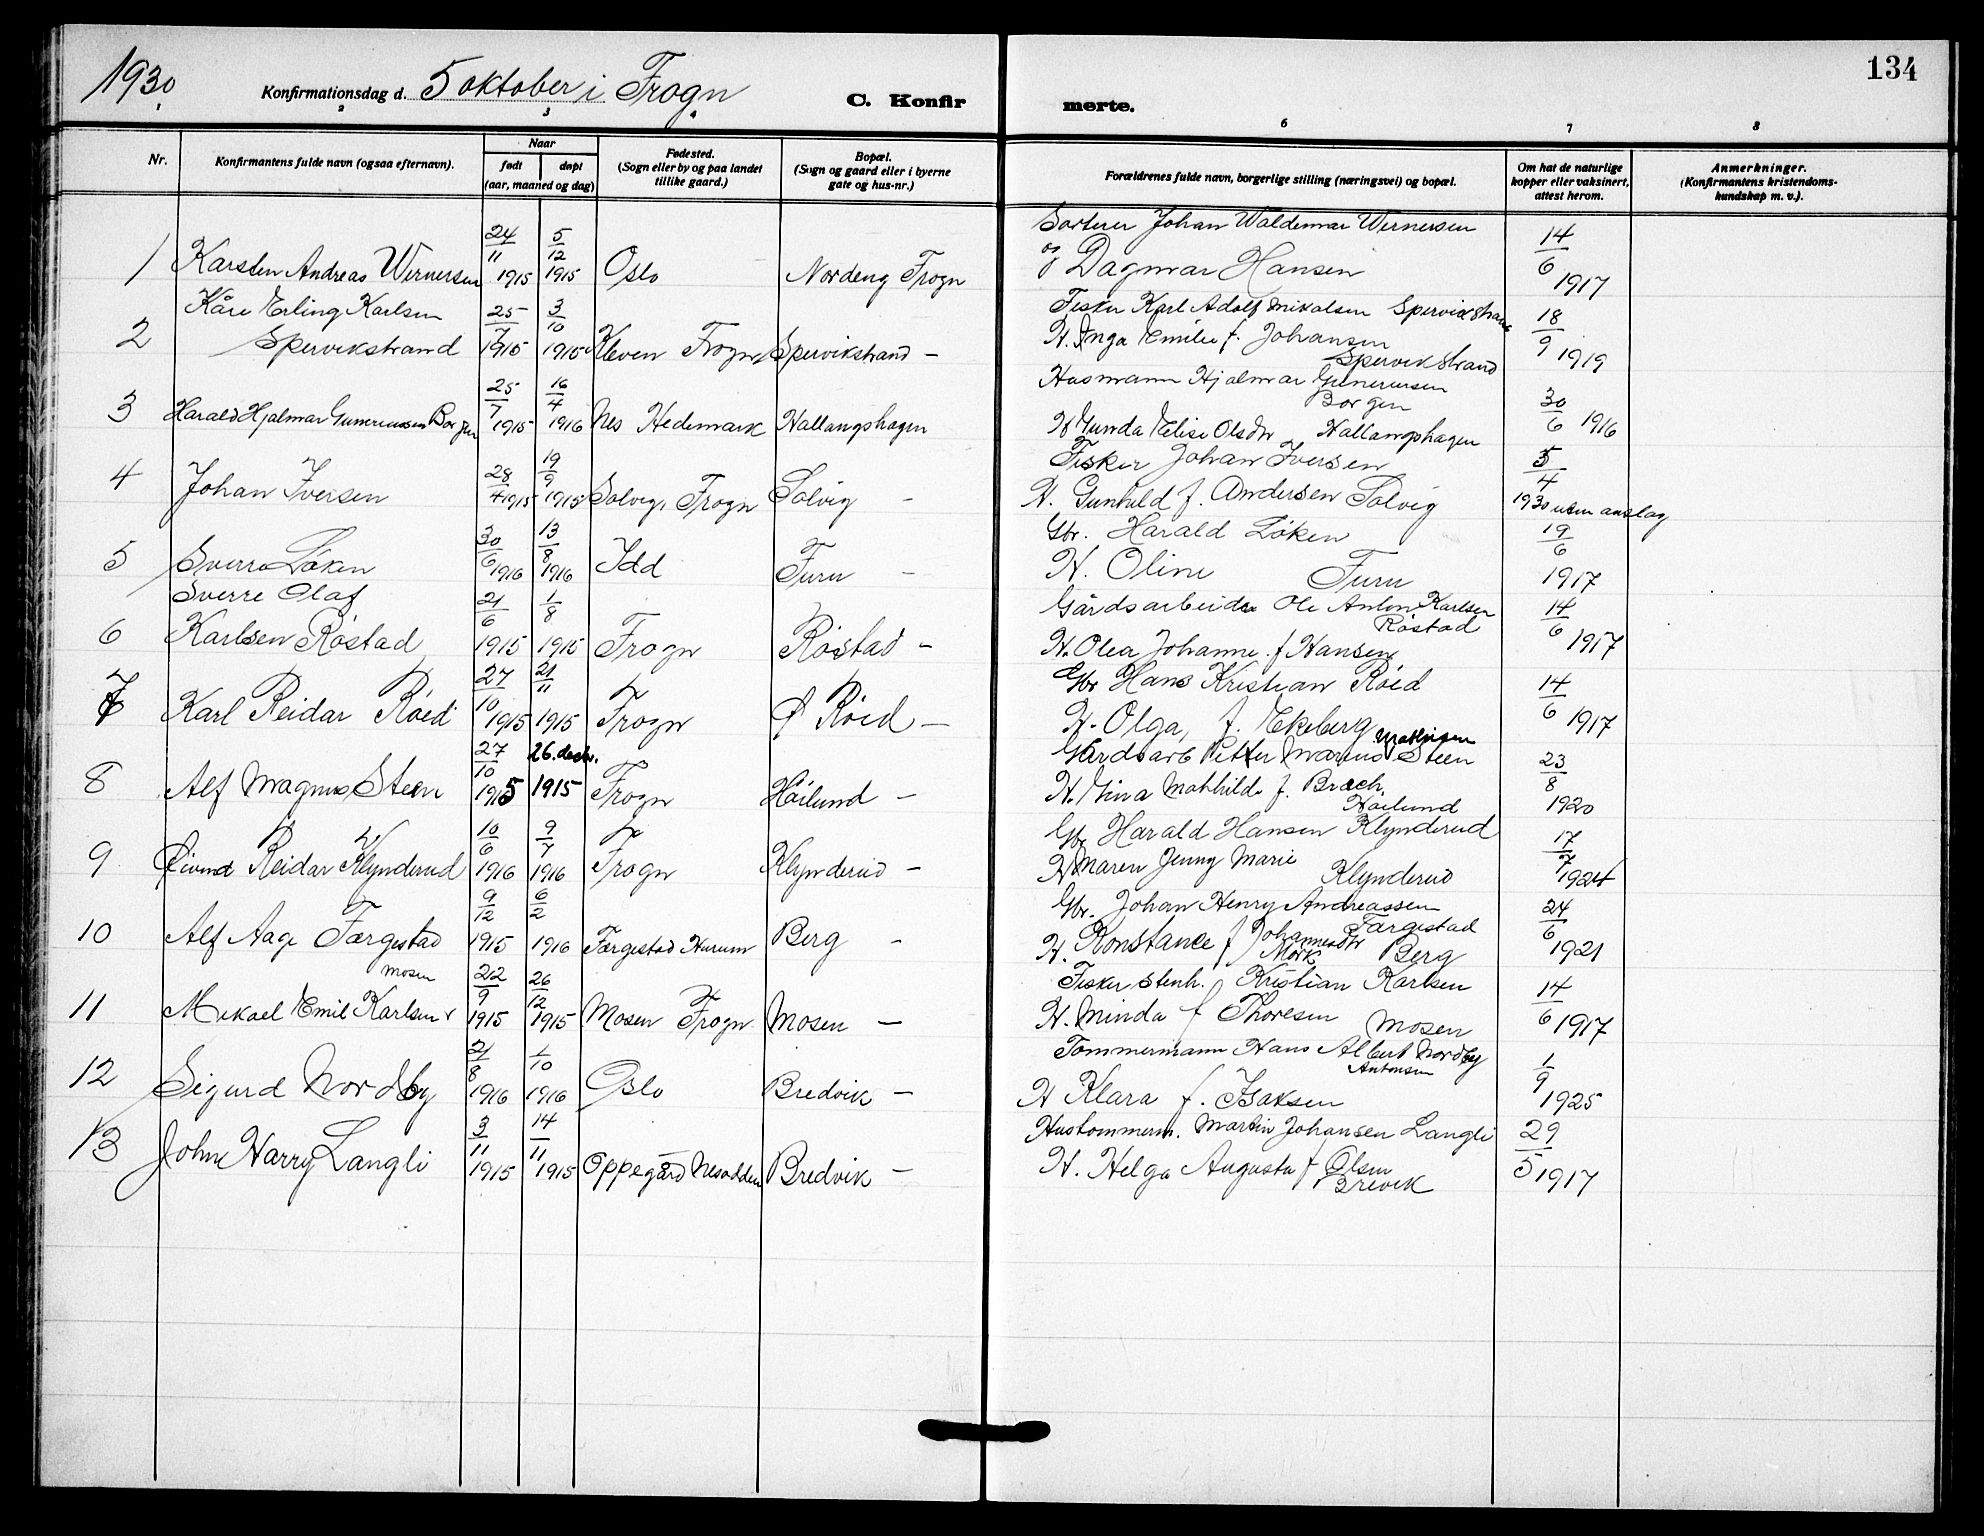 1930
Konfirmationsdag d. 5 oktober i Frogn
C. Konfirmerte.
134
1 2 3 4 6 7 8
Nr.
Konfirmantens fulde navn (ogsaa efternavn).
Naar
født
døpt
(aar, maaned og dag)
Fødested.
(Sogn eller by og paa landet
tillike gaard.)
Bopæl.
(Sogn og gaard eller i byerne
gate og hus-nr.)
Forældrenes fulde navn, borgerlige stilling (næringsvei) og bopæl.
Om hat de naturlige
kopper eller vaksinert,
attest herom.
Anmerkninger.
(Konfirmantens kristendoms-
kundskap m. v.).
1 Karsten Andreas Wernersen 24/11 1915 5/12 1915 Oslo Nordeng Frogn
Sorterer Johan Waldemar Wernersen
og Dagmar Hansen
14/6 1917
Kåre Erling Karlsen
2 Spervikstrand 25/7 1915 3/10 1915 Kleven Frogn Spervikstrand -
Fisker Karl Adolf Mikalsen Spervikstrand
H. Inga Emilie f. Johansen
Spervikstrand
18/9 1919
3 Harald Hjalmar Guneriussen Borgen 25/7 1915 16/4 1916 Nes Hedemark Hallangshagen
Husmann Hjalmar Guneriusen
Borgen
H Gunda Elise Olsdtr Hallangshagen
30/6 1916
4 Johan Iversen 28/4 1915 19/9 1915 Solvig, Frogn Solvig -
Fisker Johan Iversen
H. Gunhild f. Andersen Solvig
5/4
1930 uten anslag
5 Sverre Løken 30/6 1916 13/8 1916 Idd Furu -
Gbr. Harald Løken
H. Oline Furu
19/6 1917
Sverre Olaf
6 Karlsen Røstad 21/6 1915 1/8 1915 Frogn Røstad -
Gårdsarbeider Ole Anton Karlsen
Røstad
H. Olea Johanne f Hansen
14/6 1917
7 Karl Reidar Røed 27/10 1915 21/11 1915 Frogn Ø Røed -
Gbr Hans Kristian Røed
H. Olga, f. Ekeberg
14/6 1917
8 Alf Magnus Steen 27/10 1915 26. decbr. 1915 Frogn Høilund -
Gårdsarb Petter Marius Steen
H. Gina Mathilde f. Brach.
Høilund
23/8 1920
9 Øivind Reidar Klynderud 10/6 1916 9/7 1916 Frogn Klynderud -
Gbr Harald Hansen Klynderud
H Maren Jenny Marie
Klynderud
17/7 1924
10 Alf Aage Færgestad 9/12 1915 6/2 1916 Færgestad Hurum Berg -
Gbr. Johan Henry Andreassen
Færgestad
H. Konstance f Johannesdtr
Mørk Berg
24/6 1921
Mosen
11 Mikael Emil Karlsen 22/9 1915 26/12 1915 Mosen Frogn Mosen -
Fisker Stenh. Kristian Karlsen
H. Minda f Thoresen Mosen
14/6 1917
12 Sigurd Nordby 21/8 1916 1/10 1916 Oslo Bredvik -
Tømmermann Hans Albert Nordby
Antonsen
H Klara f. Isaksen
1/9 1925
13 John Harry Langli 3/11 1915 14/11 1915 Oppegård Nesodden Bredvik -
Hustømmerm. Martin Johansen Langli
H. Helga Augusta f Olsen
Brevik
29/5 1917